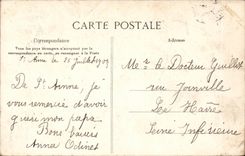 CARTE POSTALE
Correspondance
Adresse
Tous les pays étrangers n'acceptent pas la
correspondance au recto, se renseigner à la Poste
Ste Anne le 25 Juillet 1909
De Ste Anne, je
vous remercie d'avoir
guéri mon papa
Bons baisers
Anna
Mr le Docteur Guillet
rue Joinville
Le Havre
Seine Inférieure